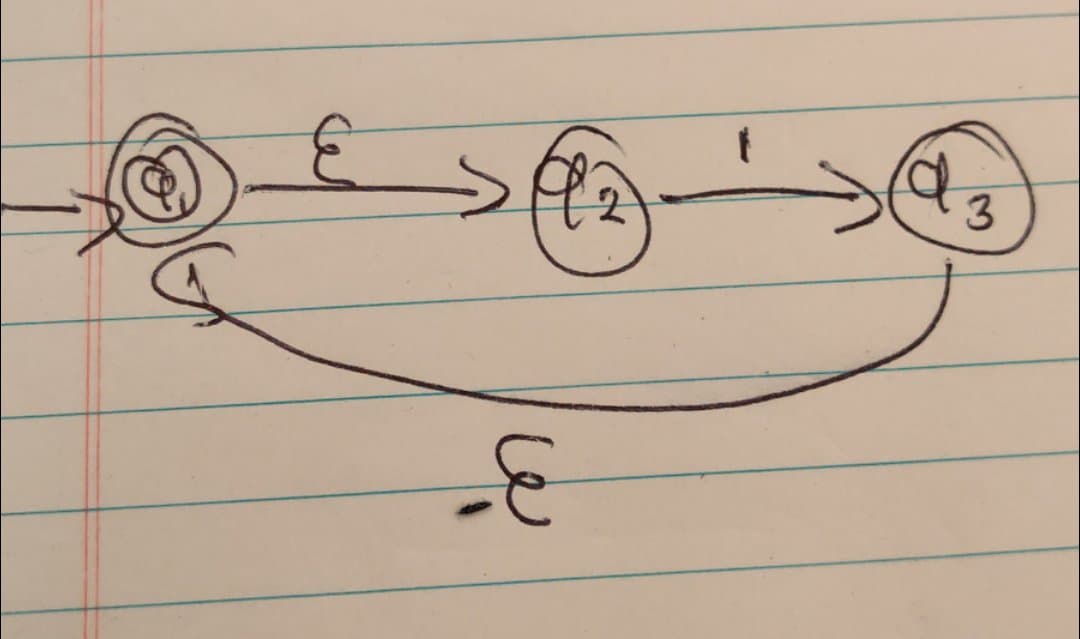 q1 ε q2 1 q3
ε